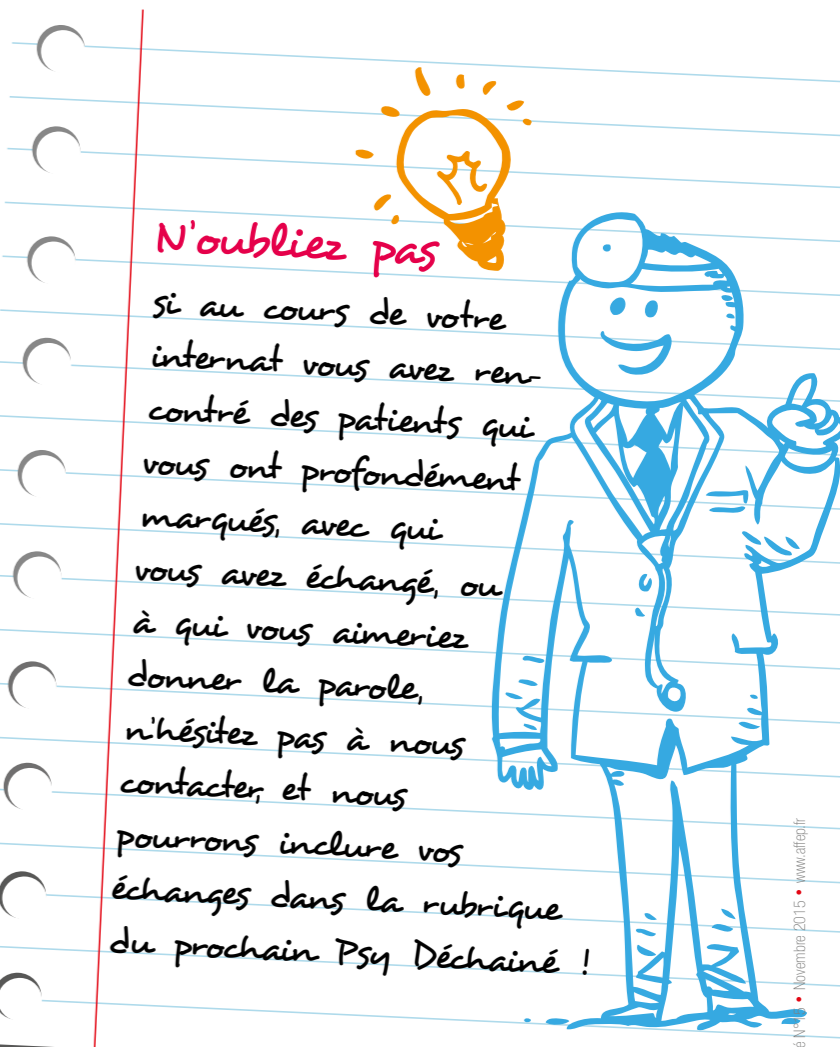 N'oubliez pas
si au cours de votre
internat vous avez ren-
contré des patients qui
vous ont profondément
marqués, avec qui
vous avez échangé, ou
à qui vous aimeriez
donner la parole,
n'hésitez pas à nous
contacter, et nous
pourrons inclure vos
échanges dans la rubrique
du prochain Psy Déchainé !
• Novembre 2015 • www.affep.fr